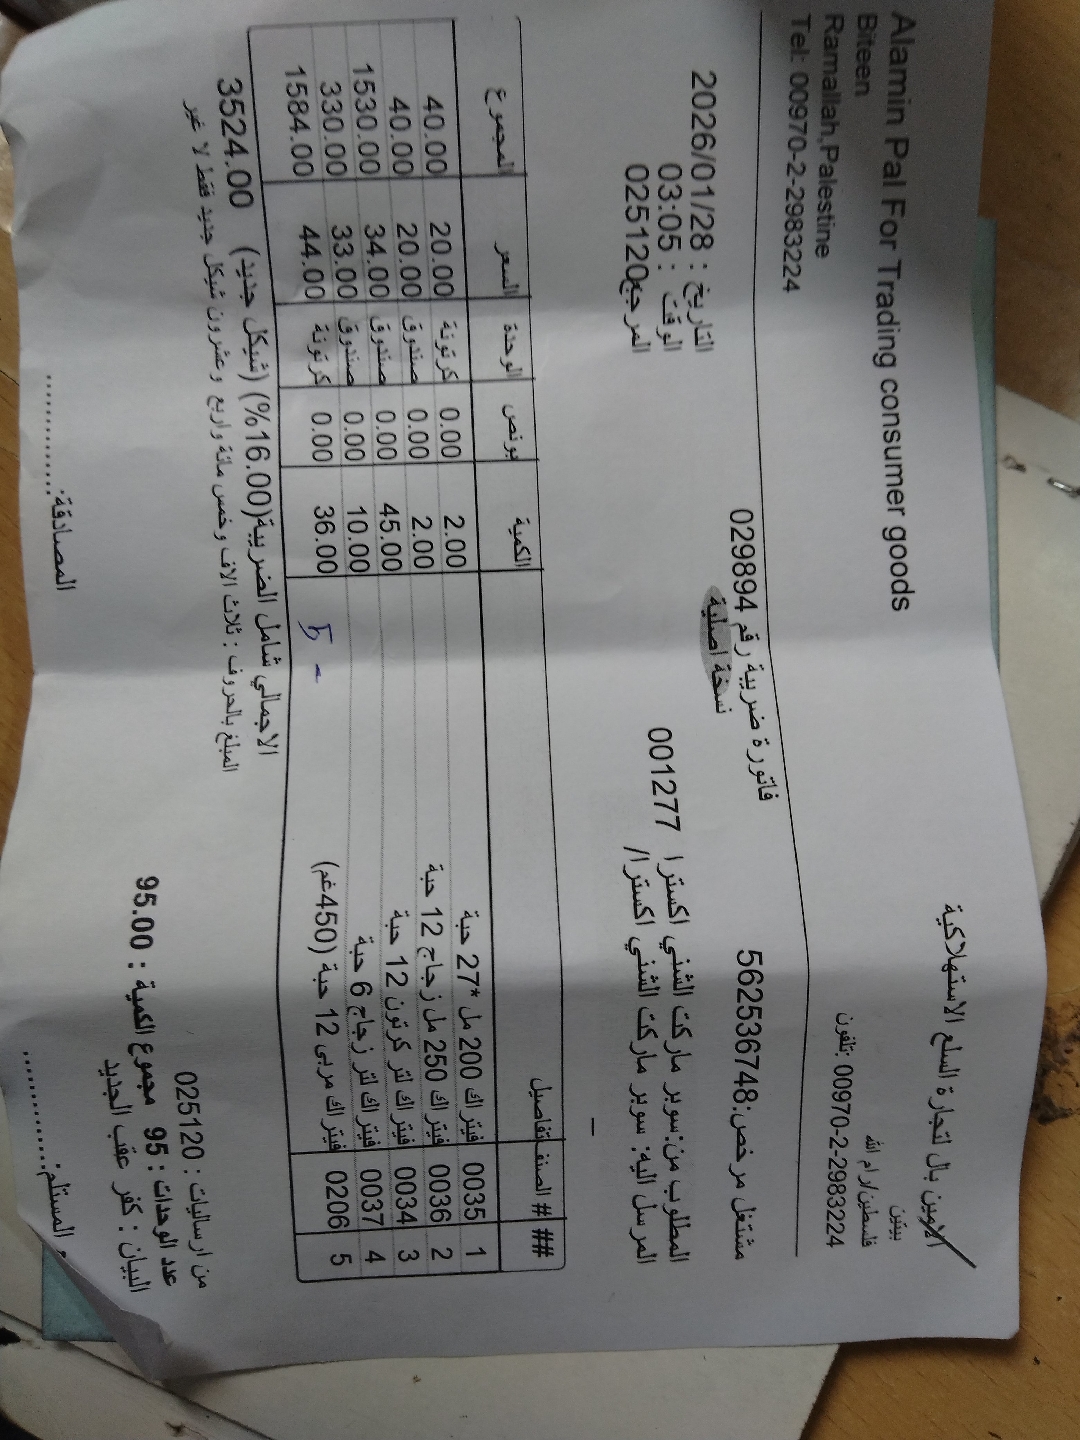 Alamin Pal For Trading consumer goods
Biteen
Ramallah,Palestine
Tel: 00970-2-2983224
الامين بال لتجارة السلع الاستهلاكية
بيتين
فلسطين/رام الله
تلفون: 00970-2-2983224
مشتغل مرخص:562536748
فاتورة ضريبة رقم 029894
نسخة اصلية
التاريخ : 2026/01/28
الوقت : 03:05
المرجع025120
المطلوب من:سوبر ماركت الشني اكسترا 001277
المرسل اليه: سوبر ماركت الشني اكسترا/
## # الصنف تفاصيل الكمية بونص الوحدة السعر المجموع
1 0035 فيتراك 200 مل *27 حبة 2.00 0.00 كرتونة 20.00 40.00
2 0036 فيتراك 250 مل زجاج 12 حبة 2.00 0.00 صندوق 20.00 40.00
3 0034 فيتراك لتر كرتون 12 حبة 45.00 0.00 صندوق 34.00 1530.00
4 0037 فيتراك لتر زجاج 6 حبة 10.00 0.00 صندوق 33.00 330.00
5 0206 فيتراك مربى 12 حبة (450غم) 36.00 0.00 كرتونة 44.00 1584.00
الاجمالي شامل الضريبة(16.00%) (شيكل جديد) 3524.00
المبلغ بالحروف : ثلاث الاف وخمس مائة واربع وعشرون شيكل جديد فقط لا غير
من ارساليات : 025120
عدد الوحدات : 95 مجموع الكمية : 95.00
البيان : كفر عقب الجديد
المستلم:.............
المصادقة:.............